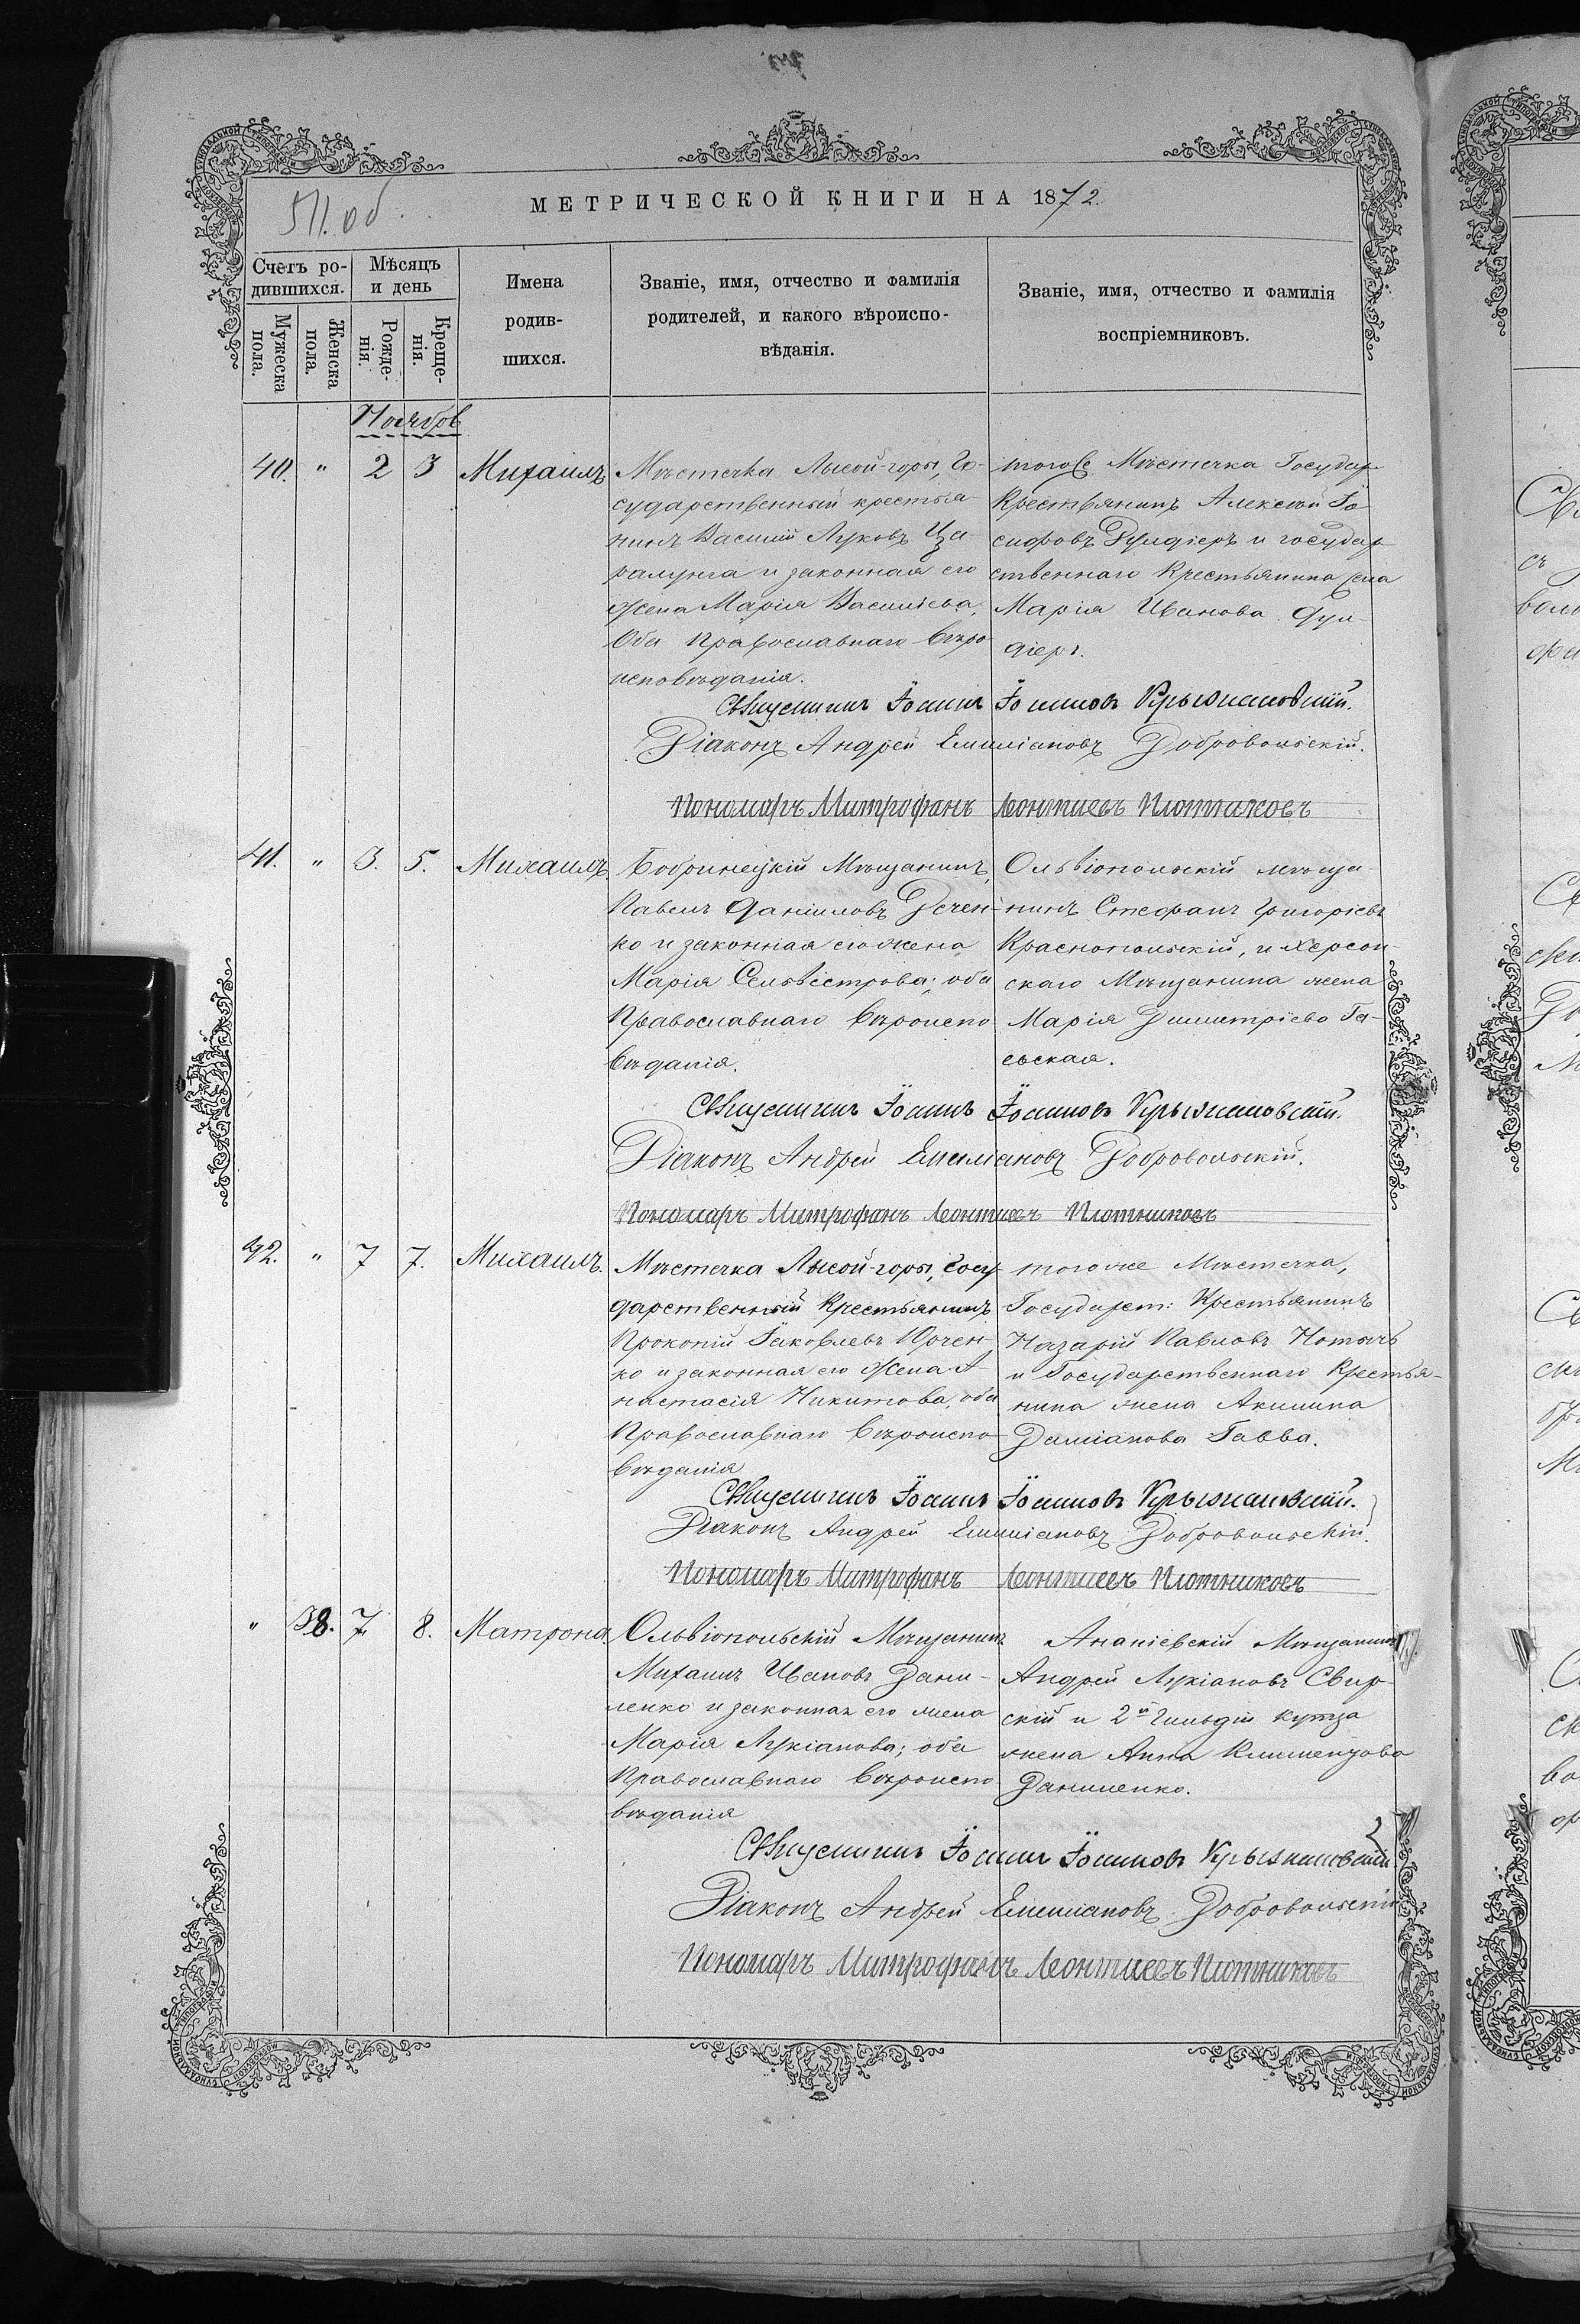 511. об.
МЕТРИЧЕСКОЙ КНИГИ НА 1872.
Счетъ ро-
дившихся.
Мѣсяцъ
и день
Мужеска
пола.
Женска
пола.
Рожде-
нія.
Креще-
нія.
Имена
родив-
шихся.
Званіе, имя, отчество и фамилія
родителей, и какого вѣроиспо-
вѣданія.
Званіе, имя, отчество и фамилія
воспріемниковъ.
Ноябрь
40. " 2 3 Михаилъ
Мѣстечка Лысой-горы, Го-
сударственный крестья-
нинъ Василій Луковъ
и законная его
жена Марія Васильева,
Оба Православнаго Вѣро
исповѣданія.
того же Мѣстечка Государ
Крестьянинъ Алексѣй Іо-
сифовъ Дундіеръ и государ
ственнаго Крестьянина жена
Марія Иванова Дун-
діеръ.
Священникъ Іоаннъ Іоанновъ Крыжановскій.
Діаконъ Андрей Емиліановъ Добровольскій.
Пономарь Митрофанъ Леонтиевъ Плотниковъ
41. " 3. 5. Михаилъ
Бобринецкій Мѣщанинъ,
Павелъ Даніиловъ Дечен-
ко и законная его жена
Марія Сельвестрова; оба
Православнаго Вѣроиспо
вѣданія.
Ольвіопольскій мѣща-
нинъ Стефанъ Григорьевъ
Краснопольскій, и Херсон-
скаго Мѣщанина жена
Марія Димитріева Га-
евская.
Священникъ Іоаннъ Іоанновъ Крыжановскій.
Діаконъ Андрей Емиліановъ Добровольскій.
Пономарь Митрофанъ Леонтиевъ Плотниковъ
42. " 7 7. Михаилъ.
Мѣстечка Лысой-горы, Госу-
дарственный Крестьянинъ
Прокопій Іаковлевъ Юрчен-
ко и законная его Жена А-
настасія Никитова, оба
Православнаго Вѣроиспо-
вѣданія
того же Мѣстечка,
Государст: Крестьянинъ
Назарій Павловъ
и Государственнаго Крестья-
нина жена Акилина
Даміанова Гавва.
Священникъ Іоаннъ Іоанновъ Крыжановскій.
Діаконъ Андрей Емиліановъ Добровольскій.
Пономарь Митрофанъ Леонтиевъ Плотниковъ
" 38. 7. 8. Матрона
Ольвіопольскій Мѣщанинъ
Михаилъ Ивановъ Дани-
ленко и законная его жена
Марія Лукіанова; оба
Православнаго Вѣроиспо
вѣданія
Ананіевскій Мѣщанинъ
Андрей Лукіановъ Свир-
скій и 2й Гильдіи купца
жена Анна Климентова
Даниленко.
Священникъ Іоаннъ Іоанновъ Крыжановскій
Діаконъ Андрей Емиліановъ Добровольскій
Пономарь Митрофанъ Леонтиевъ Плотниковъ